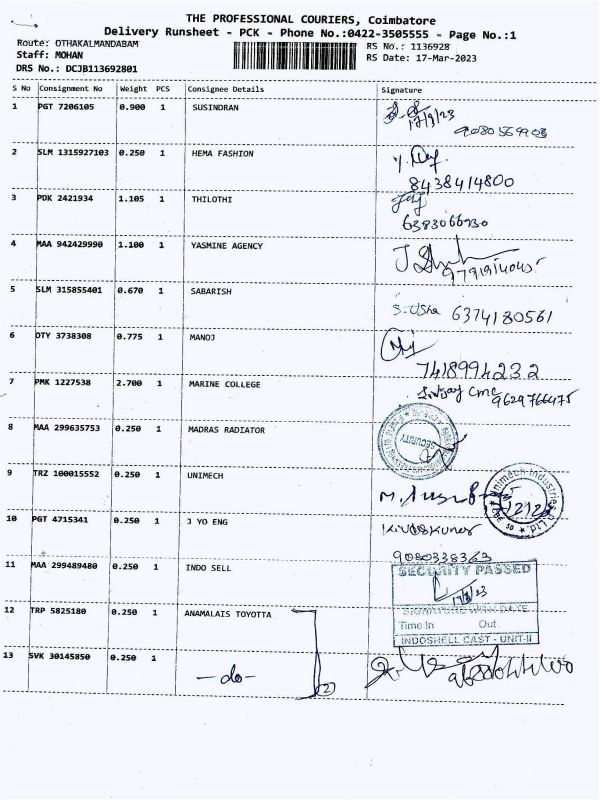 THE PROFESSIONAL COURIERS, Coimbatore
Delivery Runsheet - PCK - Phone No.:0422-3505555 - Page No.:1
Route: OTHAKALMANDABAM
RS No.: 1136928
Staff: MOHAN
RS Date: 17-Mar-2023
DRS No.: DCJB113692801
S No Consignment No Weight PCS Consignee Details Signature
1 PGT 7206105 0.900 1 SUSINDRAN
17/3/23
2 SLM 1315927103 0.250 1 HEMA FASHION
8438414800
3 PDK 2421934 1.105 1 THILOTHI
6383066930
4 MAA 942429990 1.100 1 YASMINE AGENCY
5 SLM 315855401 0.670 1 SABARISH S.Usha 6374180561
6 OTY 3738308 0.775 1 MANOJ
7418994232
7 PMK 1227538 2.700 1 MARINE COLLEGE CMC 9629766475
8 MAA 299635753 0.250 1 MADRAS RADIATOR
SECURITY
9 TRZ 100015552 0.250 1 UNIMECH
10 PGT 4715341 0.250 1 J YO ENG
9080338363
11 MAA 299489480 0.250 1 INDO SELL
SECURITY PASSED
17/3/23
SIGNATURE WITH DATE
Time In Out
INDOSHELL CAST - UNIT-II
12 TRP 5825180 0.250 1 ANAMALAIS TOYOTTA
13 SVK 30145850 0.250 1 -do- (2)